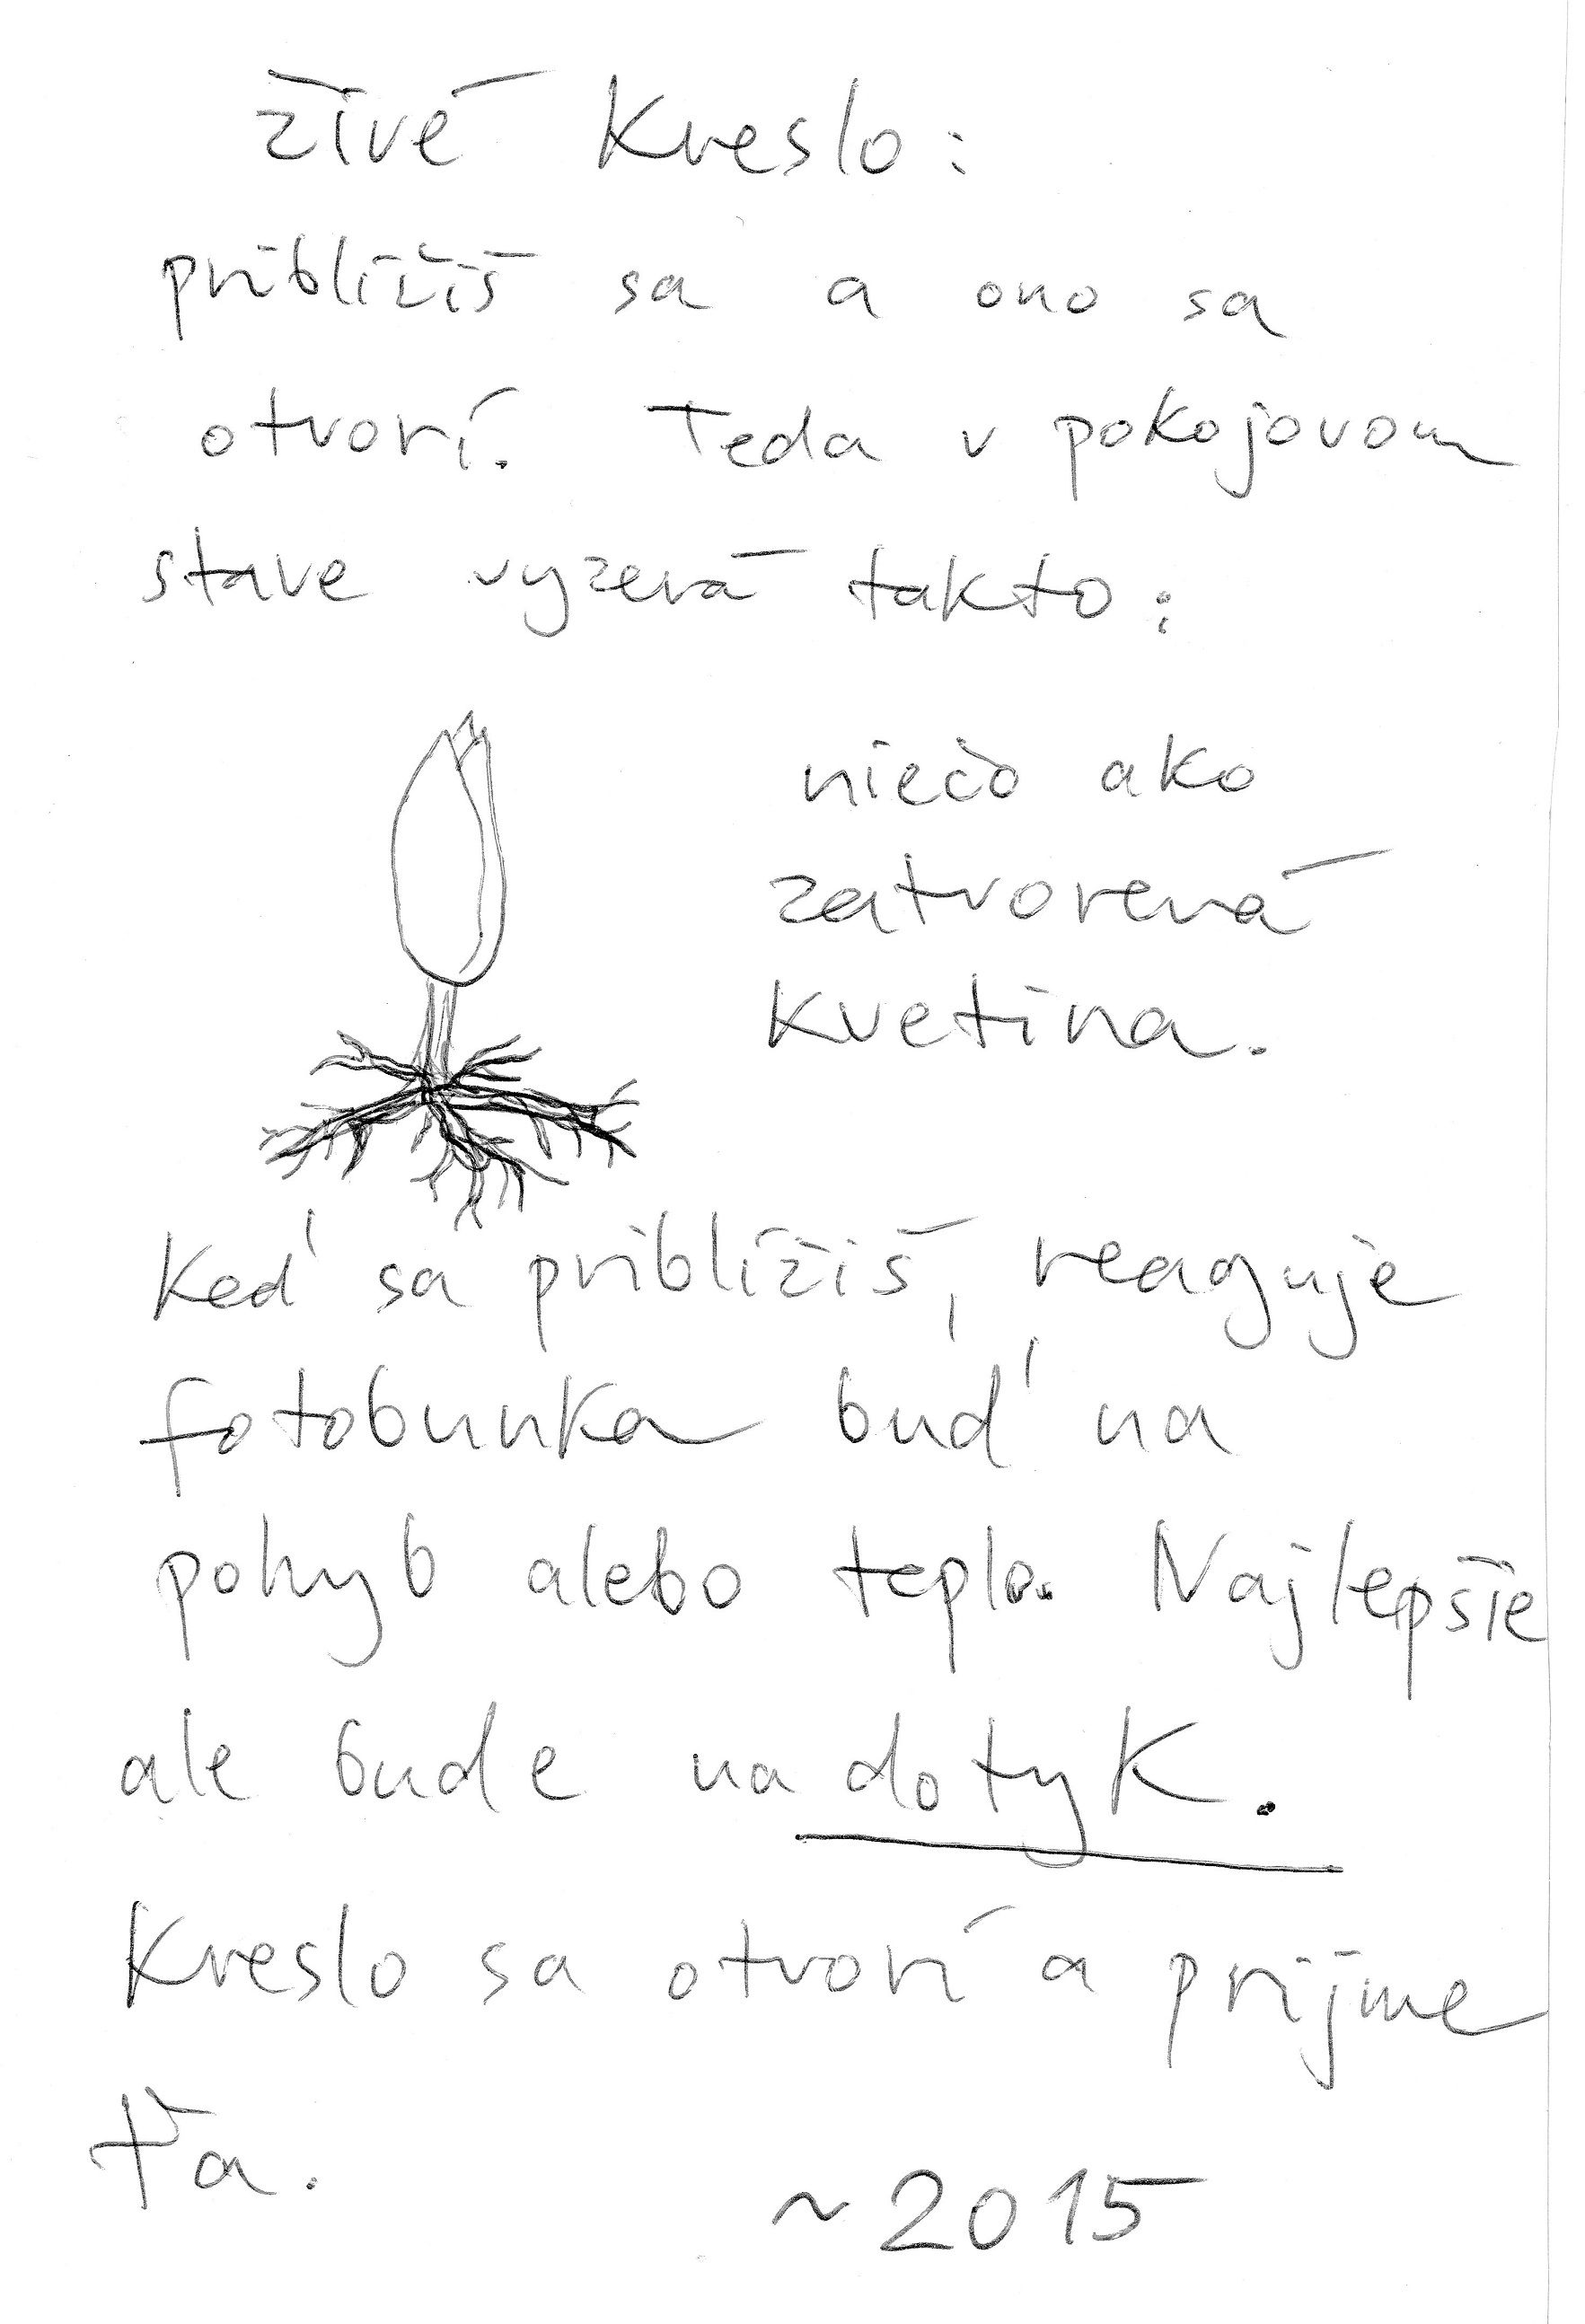 živé kreslo:
priblížiš sa a ono sa
otvorí. Teda v pokojovom
stave vyzerá takto:
niečo ako
zatvorená
kvetina.
Keď sa priblížiš, reaguje
fotobunka buď na
pohyb alebo teplo. Najlepšie
ale bude na dotyk.
Kreslo sa otvorí a prijme
ťa.
~2015